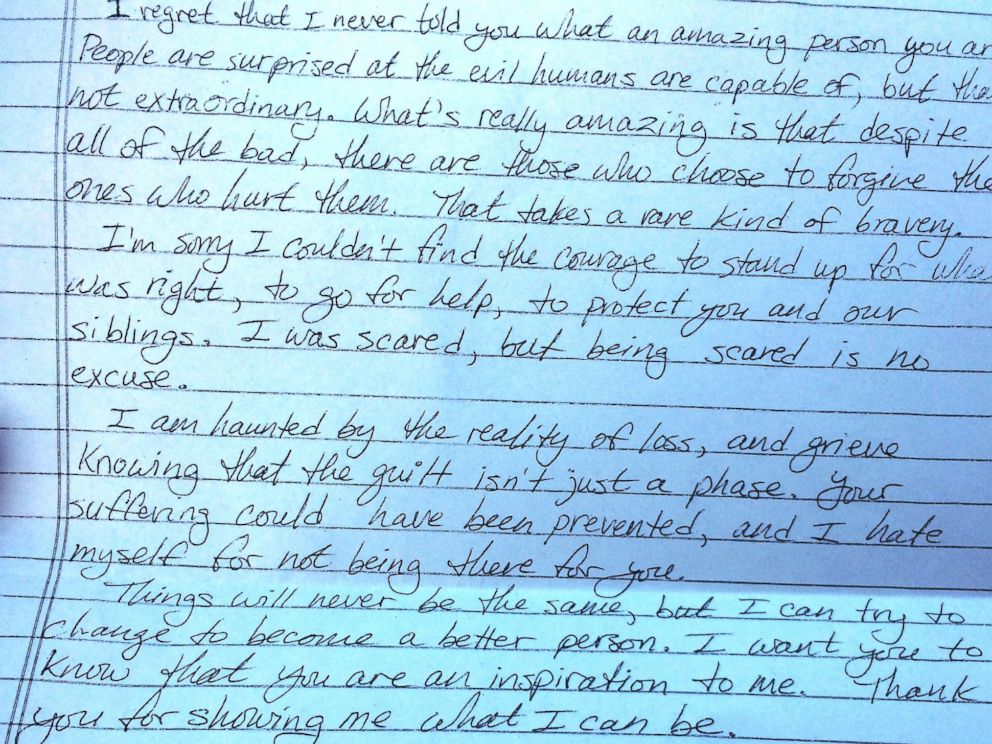 I regret that I never told you what an amazing person you ar
People are surprised at the evil humans are capable of, but tha
not extraordinary. What's really amazing is that despite
all of the bad, there are those who choose to forgive the
ones who hurt them. That takes a rare kind of bravery.
I'm sorry I couldn't find the courage to stand up for wha
was right, to go for help, to protect you and our
siblings. I was scared, but being scared is no
excuse.
I am haunted by the reality of loss, and grieve
knowing that the guilt isn't just a phase. Your
suffering could have been prevented, and I hate
myself for not being there for you.
Things will never be the same, but I can try to
change to become a better person. I want you to
know that you are an inspiration to me. Thank
you for showing me what I can be.